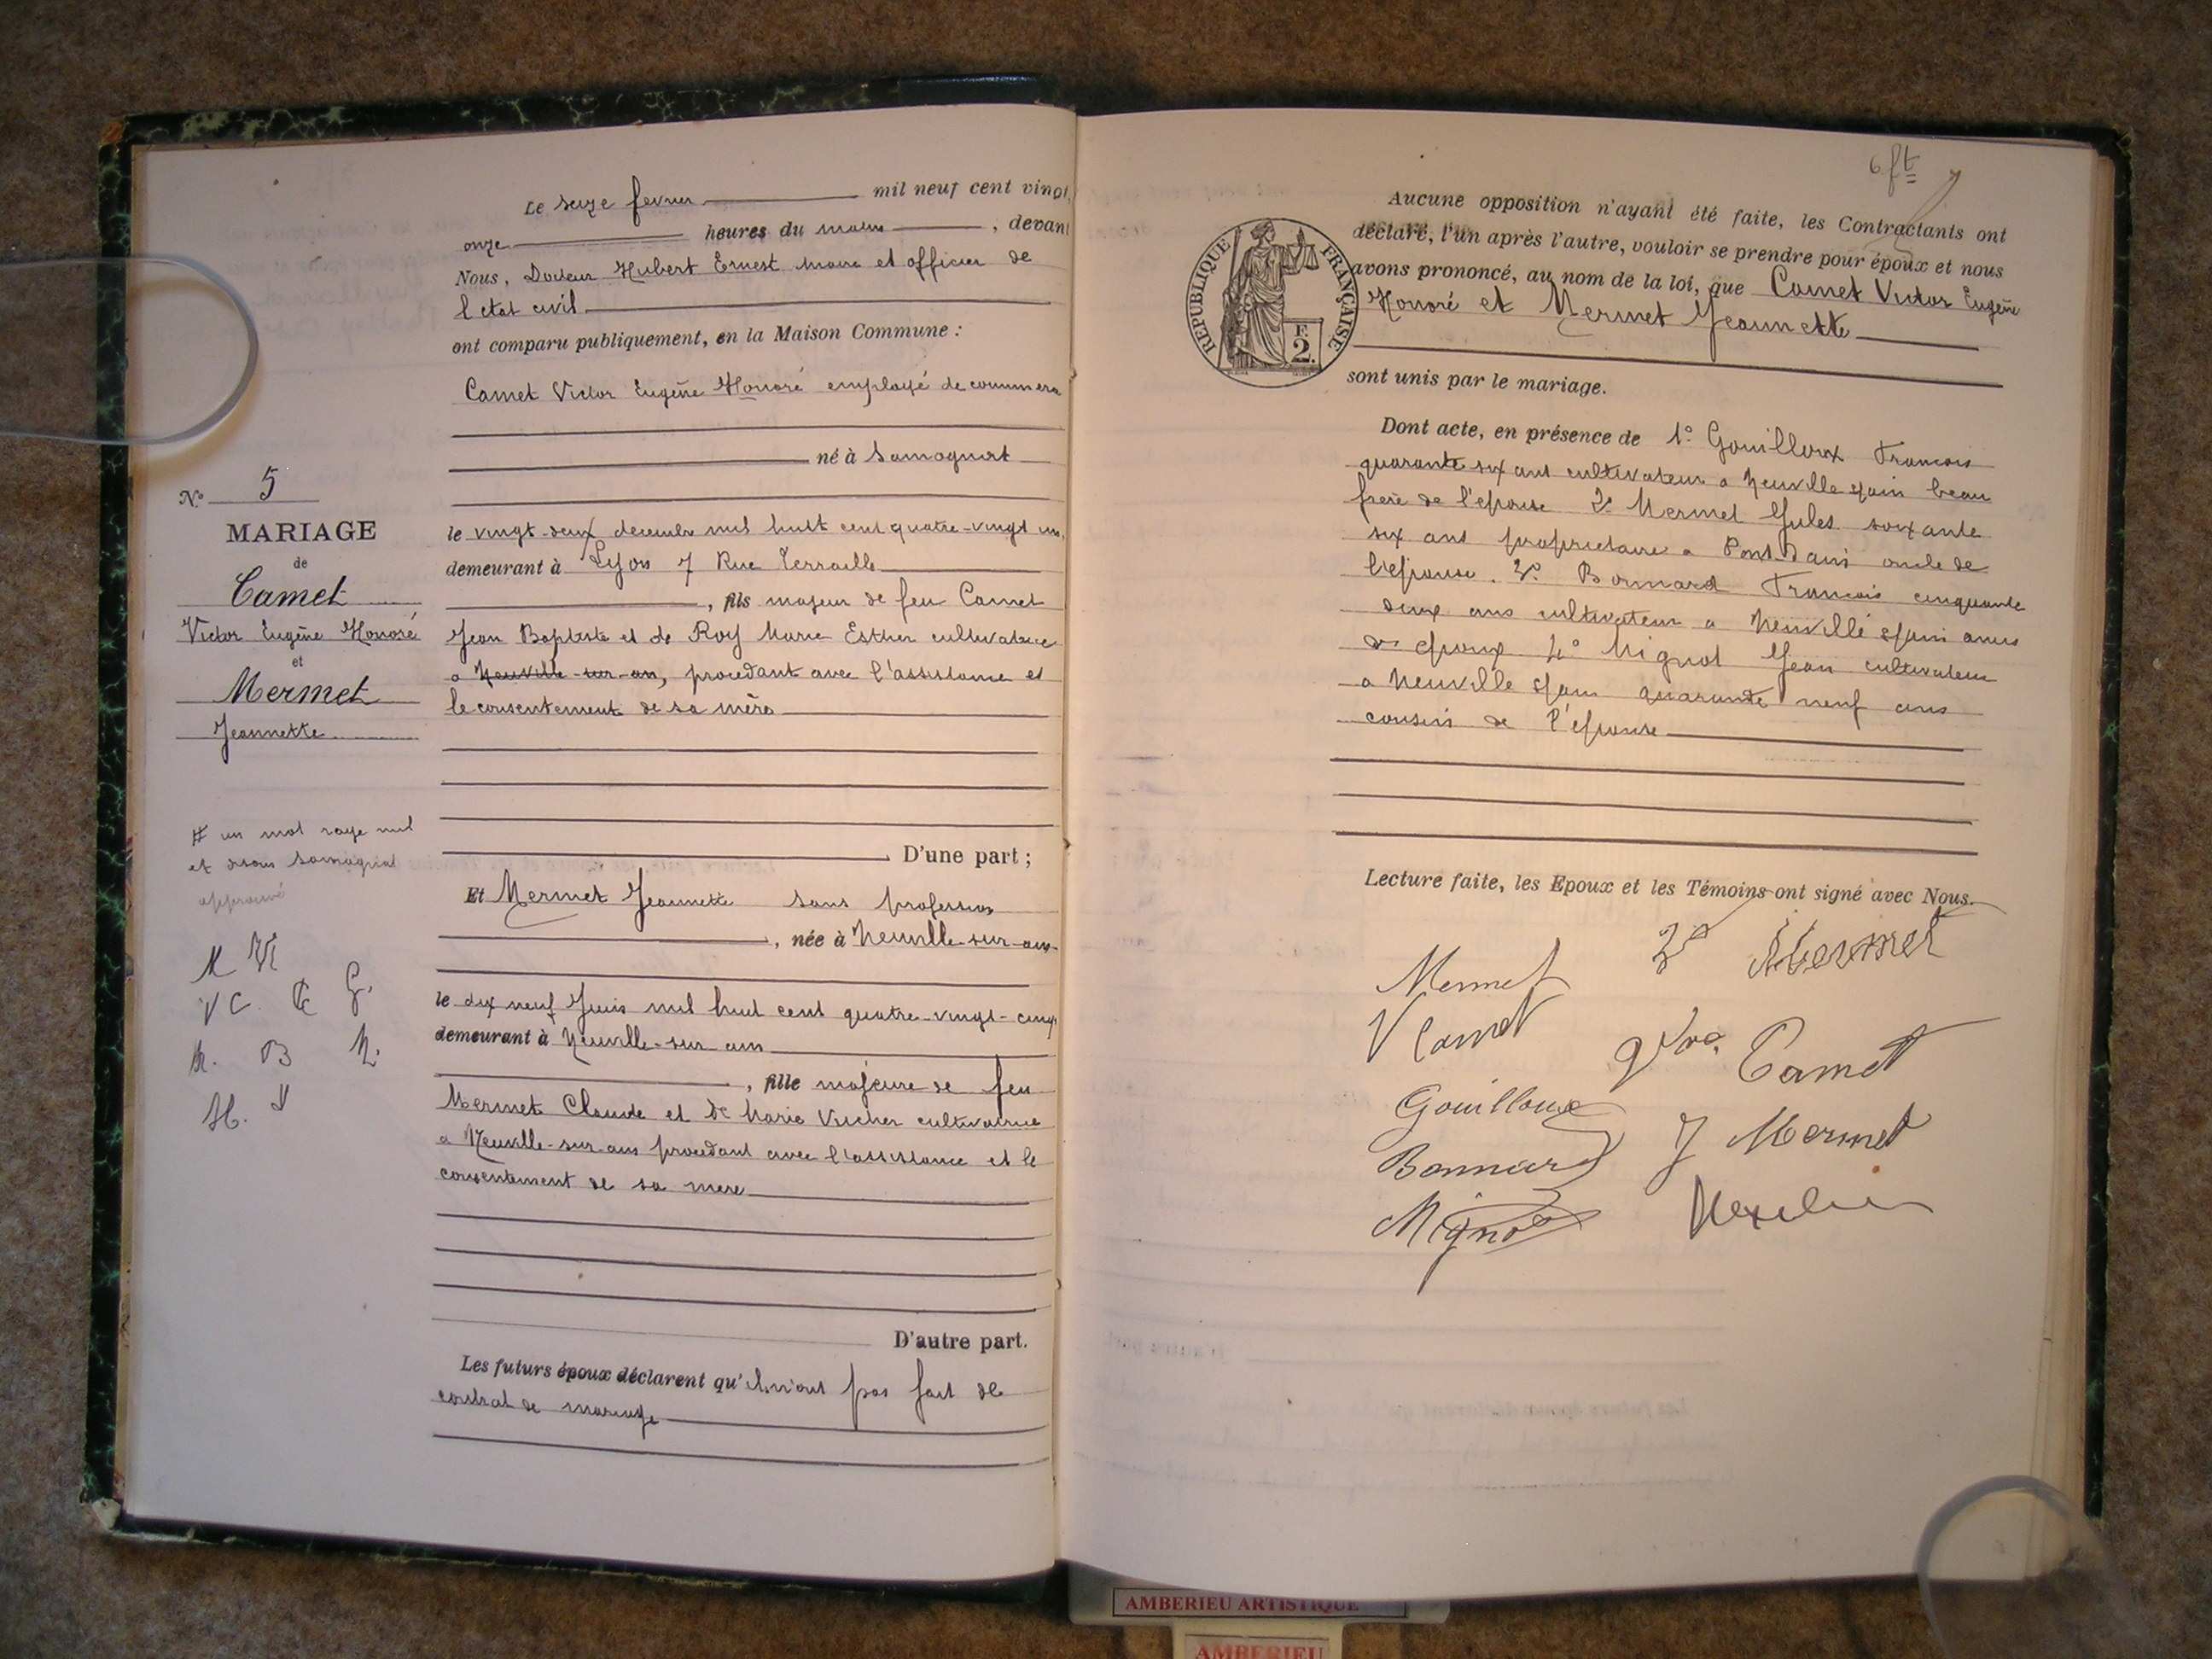 Le seize fevrier mil neuf cent vingt,
onze heures du matin, devant
Nous, Docteur Hubert Ernest maire et officier de
l'etat civil
ont comparu publiquement, en la Maison Commune :
Camet Victor Eugène Honoré employé de commerce
né à Samognat
N° 5
MARIAGE
de
Camet
Victor Eugène Honoré
et
Mermet
Jeannette
le vingt-deux decembre mil huit cent quatre-vingt un,
demeurant à Lyon 7 Rue Terraille
, fils majeur de feu Camet
Jean Baptiste et de Roy Marie Esther cultivatrice
a Neuville-sur-ain, procedant avec l'assistance et
le consentement de sa mère
D'une part ;
# un mot raye nul
et disons Samognat
approuvé
M
VC. G.
B
H.
Et Mermet Jeannette sans profession
, née à Neuville-sur-ain
le dix neuf Juin mil huit cent quatre-vingt-cinq
demeurant à Neuville-sur-ain
, fille majeure de feu
Mermet Claude et de Marie Vucher cultivatrice
a Neuville-sur-ain procedant avec l'assistance et le
consentement de sa mere
D'autre part.
Les futurs époux déclarent qu'ils n'ont pas fait de
contrat de mariage
6 ft
Aucune opposition n'ayant été faite, les Contractants ont
déclaré, l'un après l'autre, vouloir se prendre pour époux et nous
avons prononcé, au nom de la loi, que Camet Victor Eugène
Honoré et Mermet Jeannette
REPUBLIQUE FRANÇAISE
F.
2.
sont unis par le mariage.
Dont acte, en présence de 1° Gouilloux Francois
quarante six ans cultivateur a Neuville s/ain beau
frere de l'epouse 2° Mermet Jules soixante
six ans proprietaire a Pont-d'ain oncle de
l'epouse. 3° Bonnard Francois cinquante
deux ans cultivateur a Neuville s/ain amis
de epoux 4° Mignot Jean cultivateur
a Neuville s/ain quarante neuf ans
cousin de l'épouse
Lecture faite, les Epoux et les Témoins ont signé avec Nous.
Mermet
Mermet
V Camet
Vve Camet
Gouilloux
J Mermet
Bonnard
Mignot
AMBERIEU ARTISTIQUE
AMBERIEU